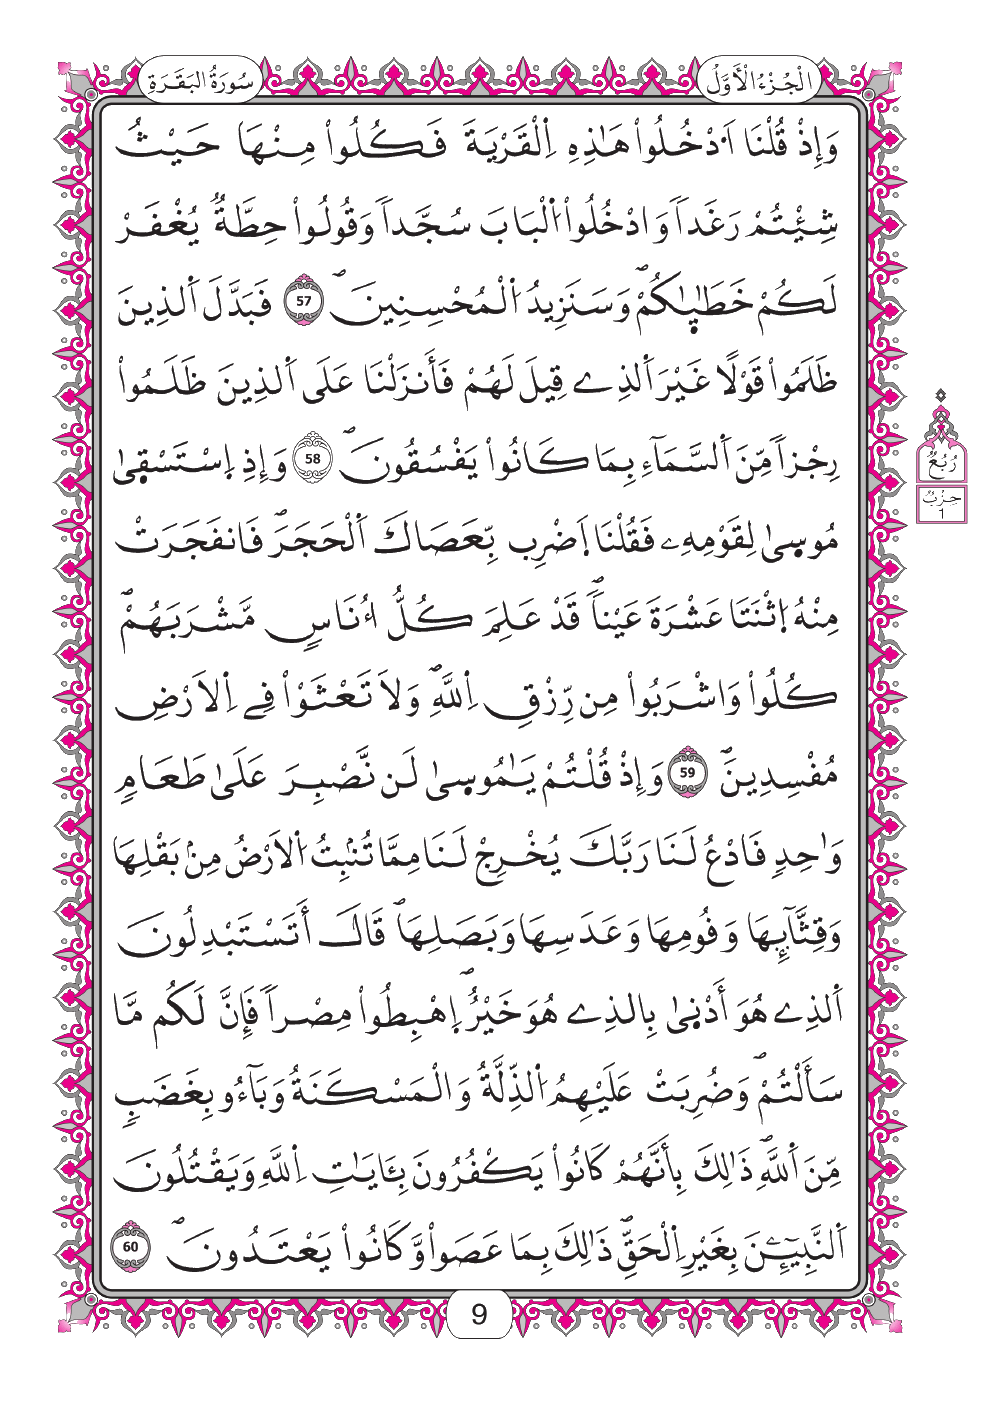 الْجُزْءُ الْأَوَّلُ
سُورَةُ الْبَقَرَةِ
وَإِذْ قُلْنَا اَ۟دْخُلُواْ هَٰذِهِ اِ۬لْقَرْيَةَ فَكُلُواْ مِنْهَا حَيْثُ
شِئْتُمْ رَغَداٗ وَادْخُلُواْ اُ۬لْبَابَ سُجَّداٗ وَقُولُواْ حِطَّةٞ يُغْفَرْ
لَكُمْ خَطَٰيَٰكُمْۖ وَسَنَزِيدُ اُ۬لْمُحْسِنِينَۖ 57 فَبَدَّلَ اَ۬لذِينَ
ظَلَمُواْ قَوْلًا غَيْرَ اَ۬لذِے قِيلَ لَهُمْ فَأَنزَلْنَا عَلَى اَ۬لذِينَ ظَلَمُواْ
رِجْزاٗ مِّنَ اَ۬لسَّمَآءِ بِمَا كَانُواْ يَفْسُقُونَۖ 58 وَإِذِ اِ۪سْتَسْقۭيٰ
مُوسۭيٰ لِقَوْمِهِۦ فَقُلْنَا اَ۪ضْرِب بِّعَصَاكَ اَ۬لْحَجَرَۖ فَانفَجَرَتْ
مِنْهُ اُ۪ثْنَتَا عَشْرَةَ عَيْناٗۖ قَدْ عَلِمَ كُلُّ أُنَاسٖ مَّشْرَبَهُمْۖ
كُلُواْ وَاشْرَبُواْ مِن رِّزْقِ اِ۬للَّهِۖ وَلَا تَعْثَوْاْ فِے اِ۬لَارْضِ
مُفْسِدِينَۖ 59 وَإِذْ قُلْتُمْ يَٰمُوسۭيٰ لَن نَّصْبِرَ عَلَىٰ طَعَامٖ
وَٰحِدٖ فَادْعُ لَنَا رَبَّكَ يُخْرِجْ لَنَا مِمَّا تُنۢبِتُ اُ۬لَارْضُ مِنۢ بَقْلِهَا
وَقِثَّآئِهَا وَفُومِهَا وَعَدَسِهَا وَبَصَلِهَاۖ قَالَ أَتَسْتَبْدِلُونَ
اَ۬لذِے هُوَ أَدْنۭيٰ بِالذِے هُوَ خَيْرٌۖ اِ۪هْبِطُواْ مِصْراٗ فَإِنَّ لَكُم مَّا
سَأَلْتُمْۖ وَضُرِبَتْ عَلَيْهِمُ اُ۬لذِّلَّةُ وَالْمَسْكَنَةُ وَبَآءُو بِغَضَبٖ
مِّنَ اَ۬للَّهِۖ ذَٰلِكَ بِأَنَّهُمْ كَانُواْ يَكْفُرُونَ بِـَٔايَٰتِ اِ۬للَّهِ وَيَقْتُلُونَ
اَ۬لنَّبِيٓـِٕۧنَ بِغَيْرِ اِ۬لْحَقِّۖ ذَٰلِكَ بِمَا عَصَواْ وَّكَانُواْ يَعْتَدُونَۖ 60
رُبُعُ
حِزْبُ
1
9